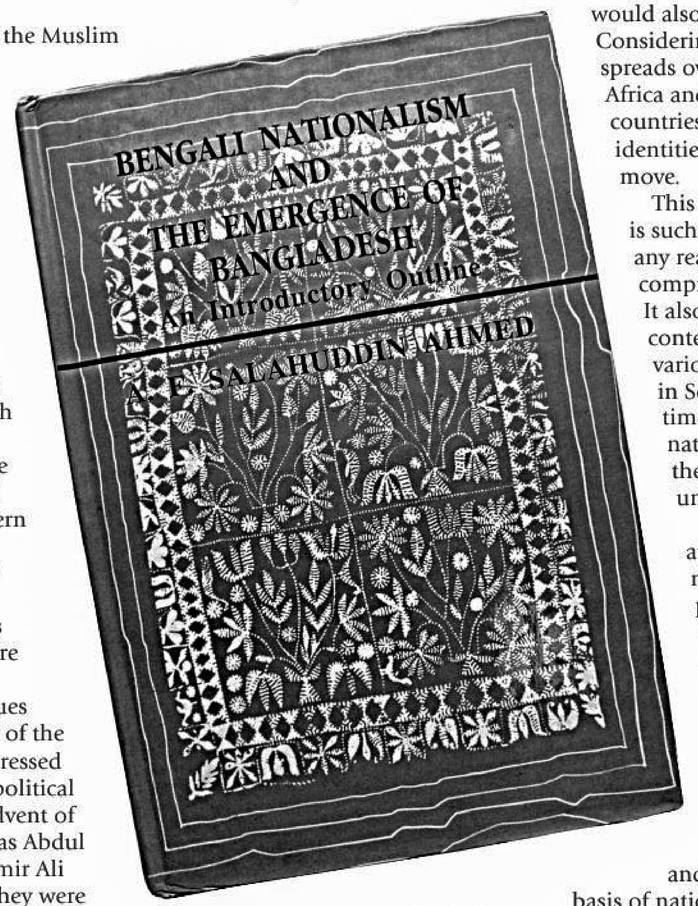 the Muslim
ern
re
ues
of the
ressed
political
lvent of
as Abdul
mir Ali
hey were
BENGALI NATIONALISM
AND
THE EMERGENCE OF
BANGLADESH
An Introductory Outline
A F SALAHUDDIN AHMED
would also
Considerin
spreads ov
Africa and
countries
identitie
move.
This
is such
any rea
compr
It also
conte
vario
in So
tim
nat
the
un
a
and
basis of natio